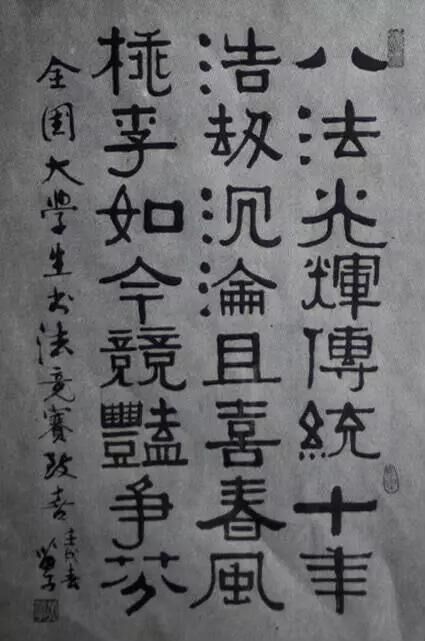 八法光輝傳統十年
浩劫沉淪且喜春風
桃李如今競豔爭芬
全国大学生书法竞赛致喜
壬戌春